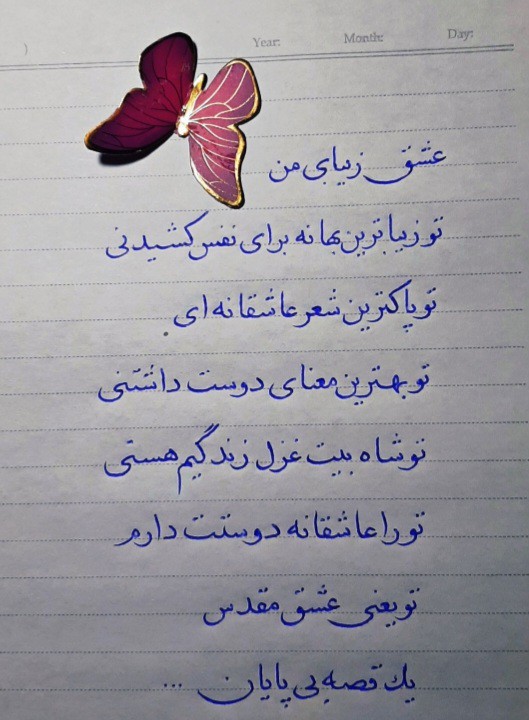 Year: Month: Day:
عشق زیبای من
تو زیباترین بهانه برای نفس کشیدنی
تو پاکترین شعر عاشقانه ای
تو بهترین معنای دوست داشتنی
تو شاه بیت غزل زندگیم هستی
تو را عاشقانه دوستت دارم
تو یعنی عشق مقدس
یك قصه بی پایان ...